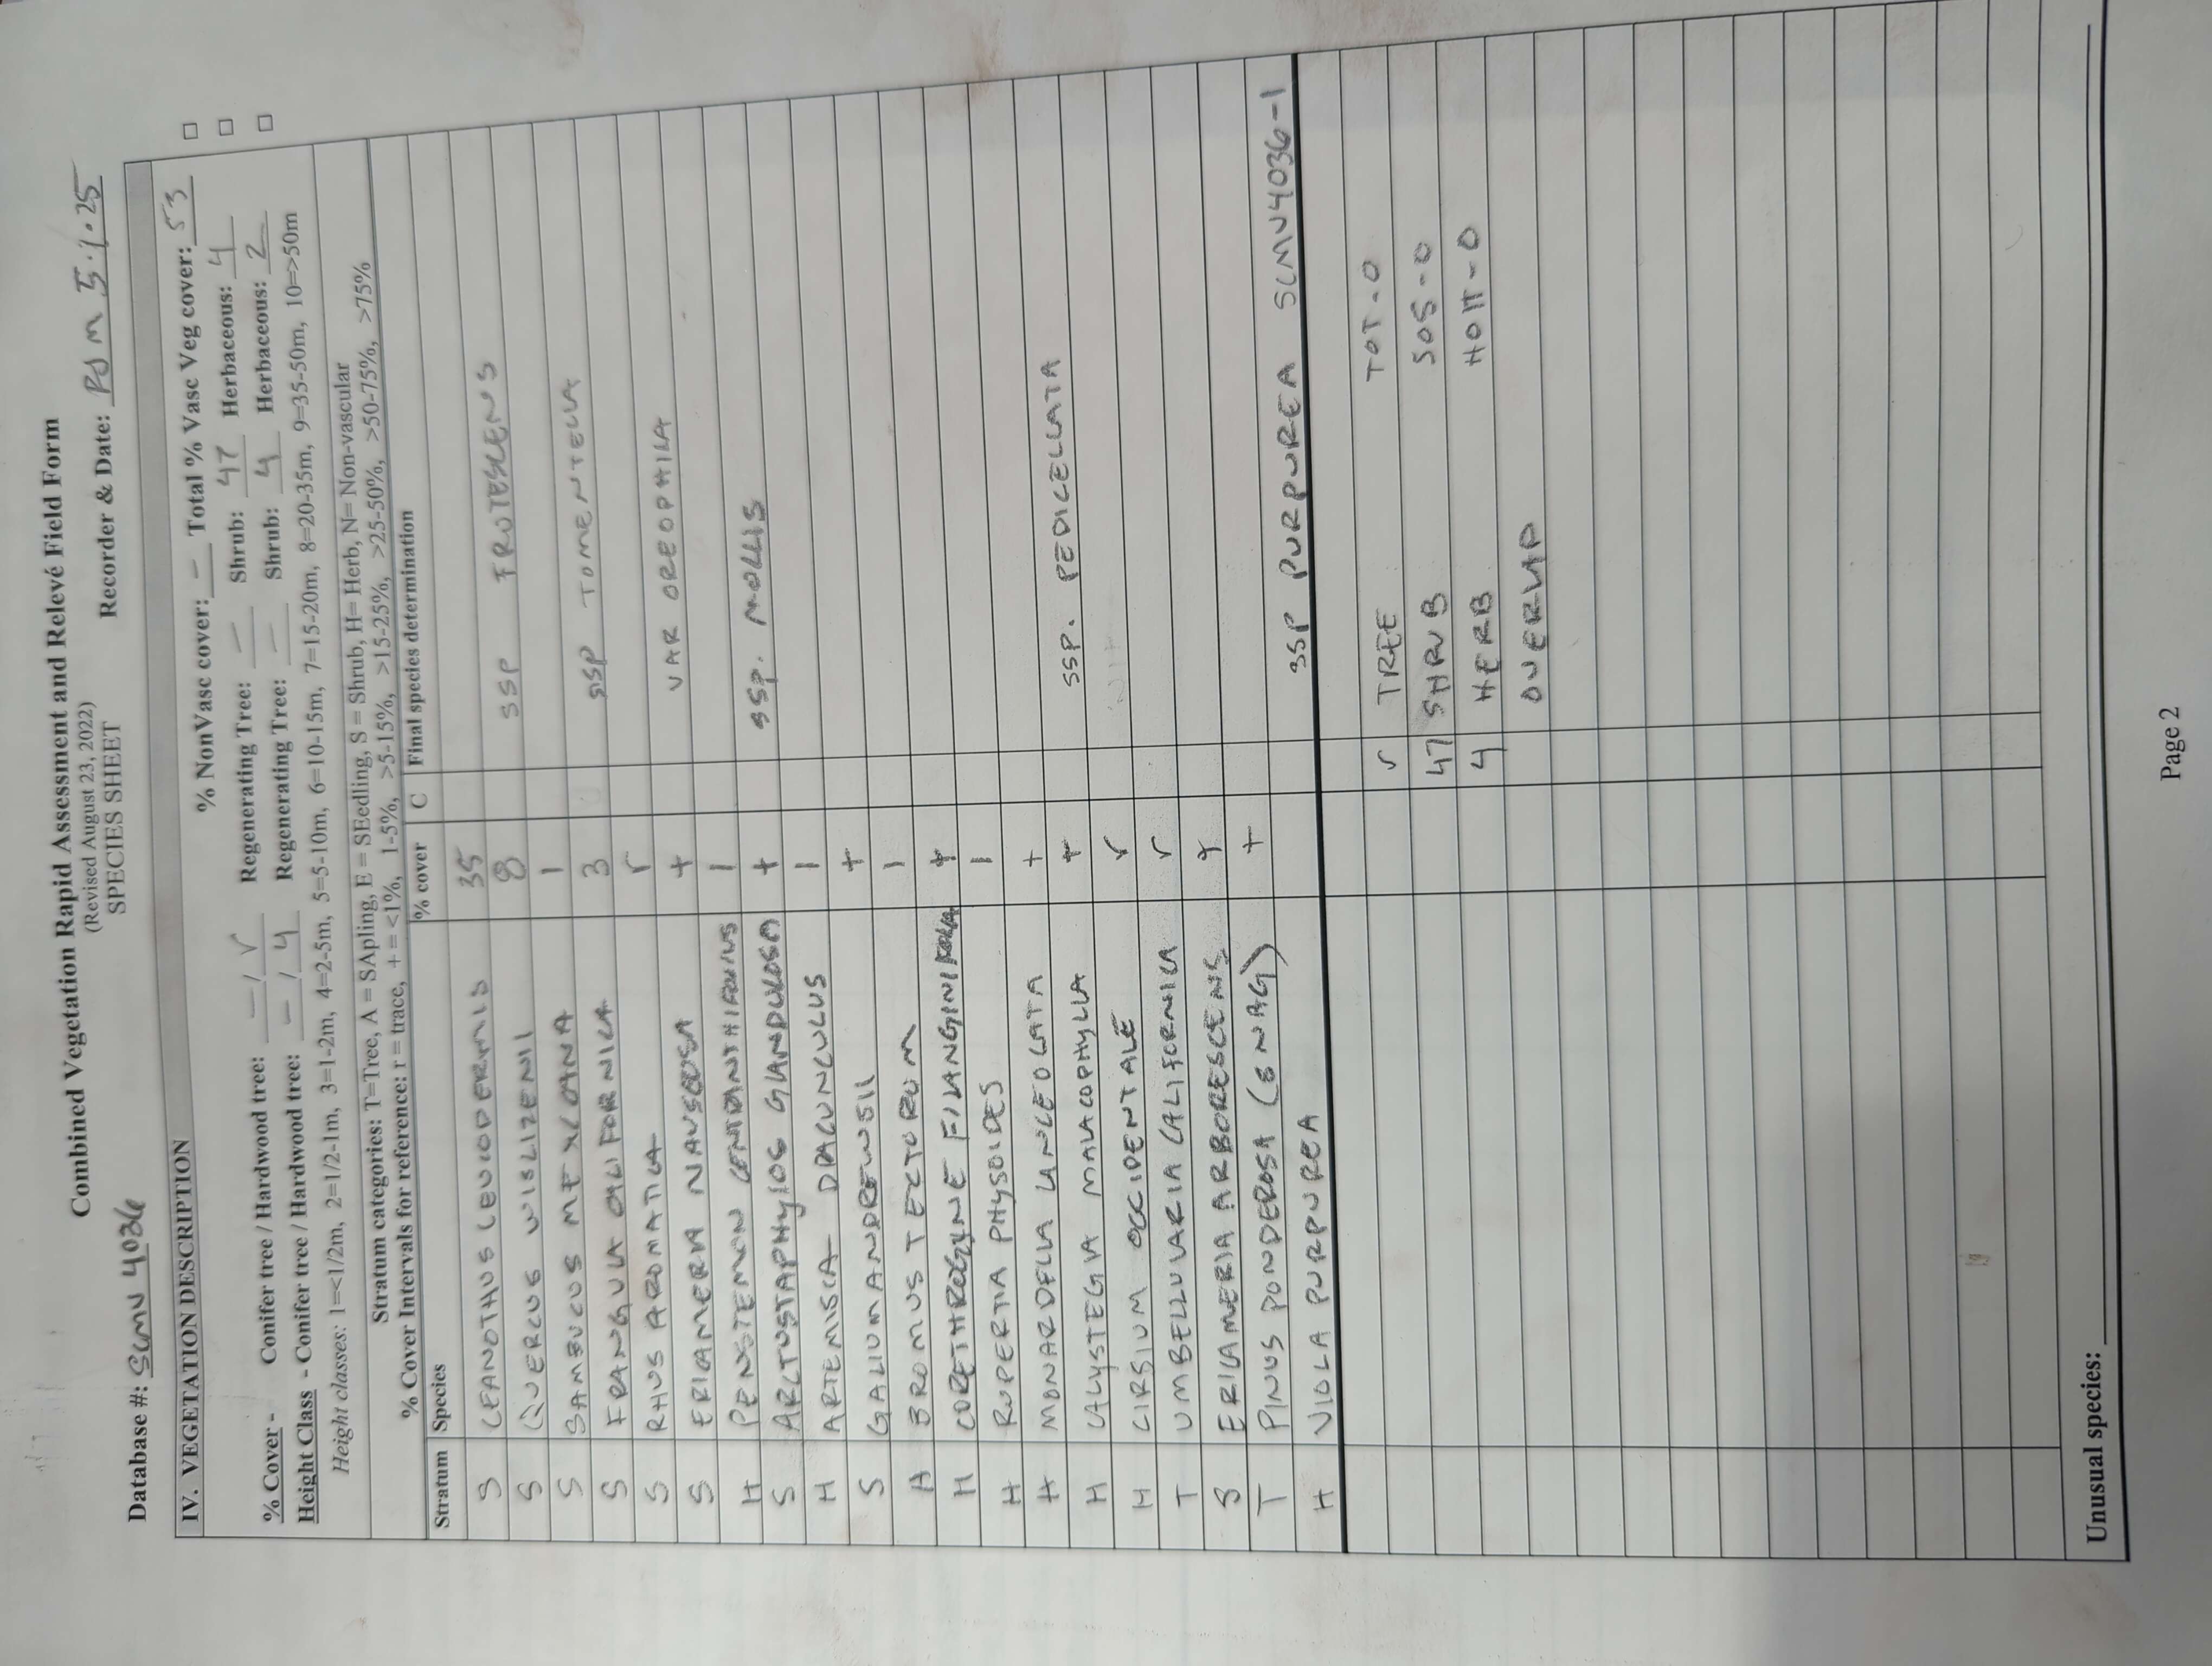 Combined Vegetation Rapid Assessment and Relevé Field Form
(Revised August 23, 2022)
SPECIES SHEET
Database #: SCMU 4036 Recorder & Date: PJM 5.1.25
IV. VEGETATION DESCRIPTION
% NonVasc cover: – Total % Vasc Veg cover: 53
% Cover - Conifer tree / Hardwood tree: – / r Regenerating Tree: – Shrub: 47 Herbaceous: 4
Height Class - Conifer tree / Hardwood tree: – / 4 Regenerating Tree: – Shrub: 4 Herbaceous: 2
Height classes: 1=<1/2m, 2=1/2-1m, 3=1-2m, 4=2-5m, 5=5-10m, 6=10-15m, 7=15-20m, 8=20-35m, 9=35-50m, 10=>50m
Stratum categories: T=Tree, A = SApling, E = SEedling, S = Shrub, H= Herb, N= Non-vascular
% Cover Intervals for reference: r = trace, + = <1%, 1-5%, >5-15%, >15-25%, >25-50%, >50-75%, >75%
Stratum Species % cover C Final species determination
S CEANOTHUS LEUCODERMIS 35
S QUERCUS WISLIZENII 8 SSP FRUTESCENS
S SAMBUCUS MEXICANA 1
S FRANGULA CALIFORNICA 3 SSP TOMENTELLA
S RHUS AROMATICA r
S ERICAMERIA NAUSEOSA + VAR OREOPHILA
H PENSTEMON CENTRANTHIFOLIUS 1
S ARCTOSTAPHYLOS GLANDULOSA + SSP. MOLLIS
H ARTEMISIA DRACUNCULUS 1
S GALIUM ANDREWSII +
H BROMUS TECTORUM 1
H CORETHROGYNE FILAGINIFOLIA +
H RUPERTIA PHYSOIDES 1
H MONARDELLA LANCEOLATA +
H CALYSTEGIA MALACOPHYLLA + SSP. PEDICELLATA
H CIRSIUM OCCIDENTALE r
T UMBELLULARIA CALIFORNICA r
S ERICAMERIA ARBORESCENS +
T PINUS PONDEROSA (SNAG) +
H VIOLA PURPUREA SSP PURPUREA SCMU4036-1
r TREE TOT-0
47 SHRUB SOS-0
4 HERB HOTT-0
OVERLAP
Unusual species:
Page 2